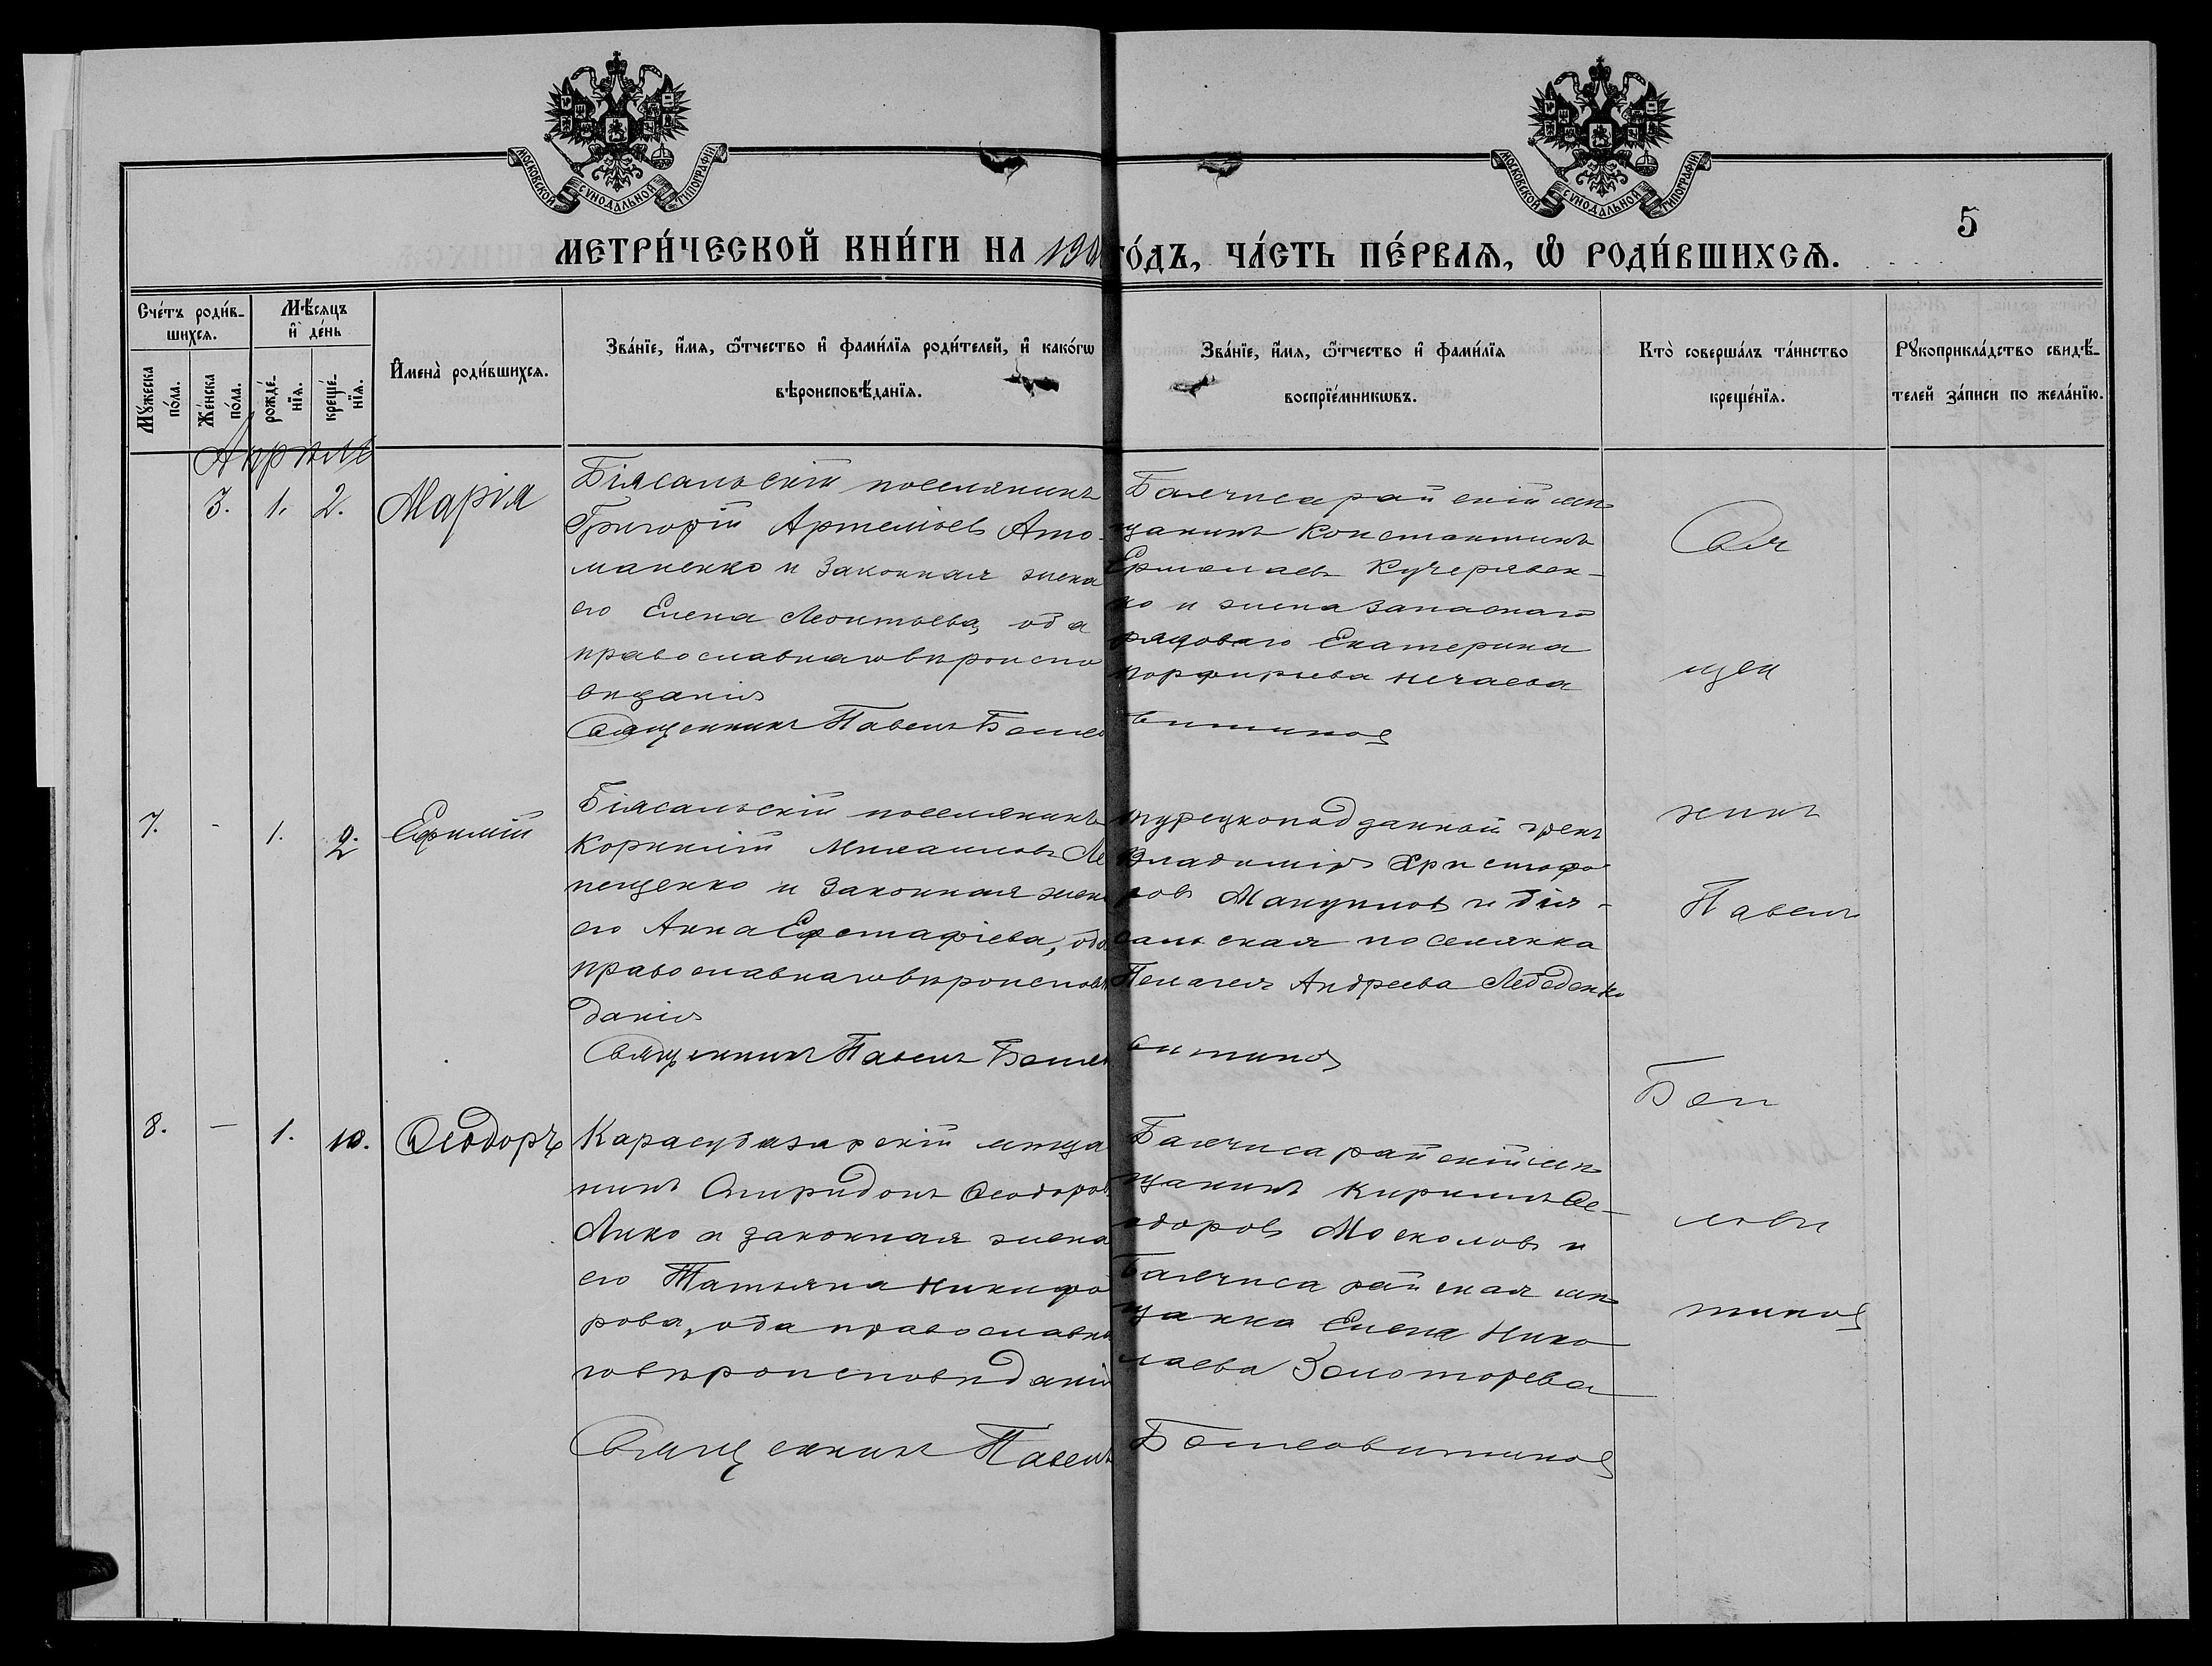 МОСКОВСКОЙ СѴНОДАЛЬНОЙ ТИПОГРАФІИ
МОСКОВСКОЙ СѴНОДАЛЬНОЙ ТИПОГРАФІИ
5
МЕТРИ́ЧЕСКОЙ КНИ́ГИ НА 190 ГО́ДЪ, ЧА́СТЬ ПЕ́РВАѦ, Ѡ РОДИ́ВШИХСѦ.
Сче́тъ роди́в-
шихсѧ.
Мꙋ́жеска
по́ла.
Же́нска
по́ла.
Мѣ́сѧцъ
и҆ де́нь
рожде́-
нїѧ.
креще́-
нїѧ.
И҆мена̀ роди́вшихсѧ.
Зва́нїе, и҆́мѧ, ѻ҆́тчество и҆ фами́лїѧ роди́телей, и҆ како́гѡ
вѣроисповѣ́данїѧ.
Зва́нїе, и҆́мѧ, ѻ҆́тчество и҆ фами́лїѧ
воспрїе́мникѡвъ.
Кто̀ соверша́лъ та́инство
креще́нїѧ.
Рꙋкоприкла́дство свидѣ́-
телей за́писи по жела́нїю.
Апрѣль
3. 1. 2. Марія
Біясальскій поселянинъ
Григорій Артеміевъ Ато-
маненко и законная жена
его Елена Леонтьева, оба
православнаго вѣроиспо
вѣданія
Священникъ Павелъ Бощев
Бахчисарайскій мѣ
щанинъ Константинъ
Ермолаевъ Кучерявен-
ко и жена запаснаго
рядоваго Екатерина
Порфирьева Нечаева
витиновъ
Свя
щен
7. - 1. 2. Ефимій
Біясальскій поселянинъ
Корнилій Михаиловъ Ле
пещенко и законная жена
его Анна Евстафіева, оба
православнаго вѣроисповѣ
данія
Священникъ Павелъ Бощев
турецкоподданной грекъ
Владиміръ Христофо
ровъ Манциновъ и бія-
сальская поселянка
Пелагея Андреева Лебеденко
витиновъ
никъ
Павелъ
Бощ
8. - 1. 10. Ѳеодоръ
Карасубазарскій мѣща
нинъ Спиридонъ Ѳеодоровъ
Лико и законная жена
его Татьяна Никифо
рова, оба православна
го вѣроисповѣданія
Священникъ Павелъ
Бахчисарайскій мѣ
щанинъ Кириллъ Ѳе-
одоровъ Москаловъ и
Бахчисарайская мѣ
щанка Елена Нико
лаева Золоторева
Бощевитиновъ
еви
тиновъ